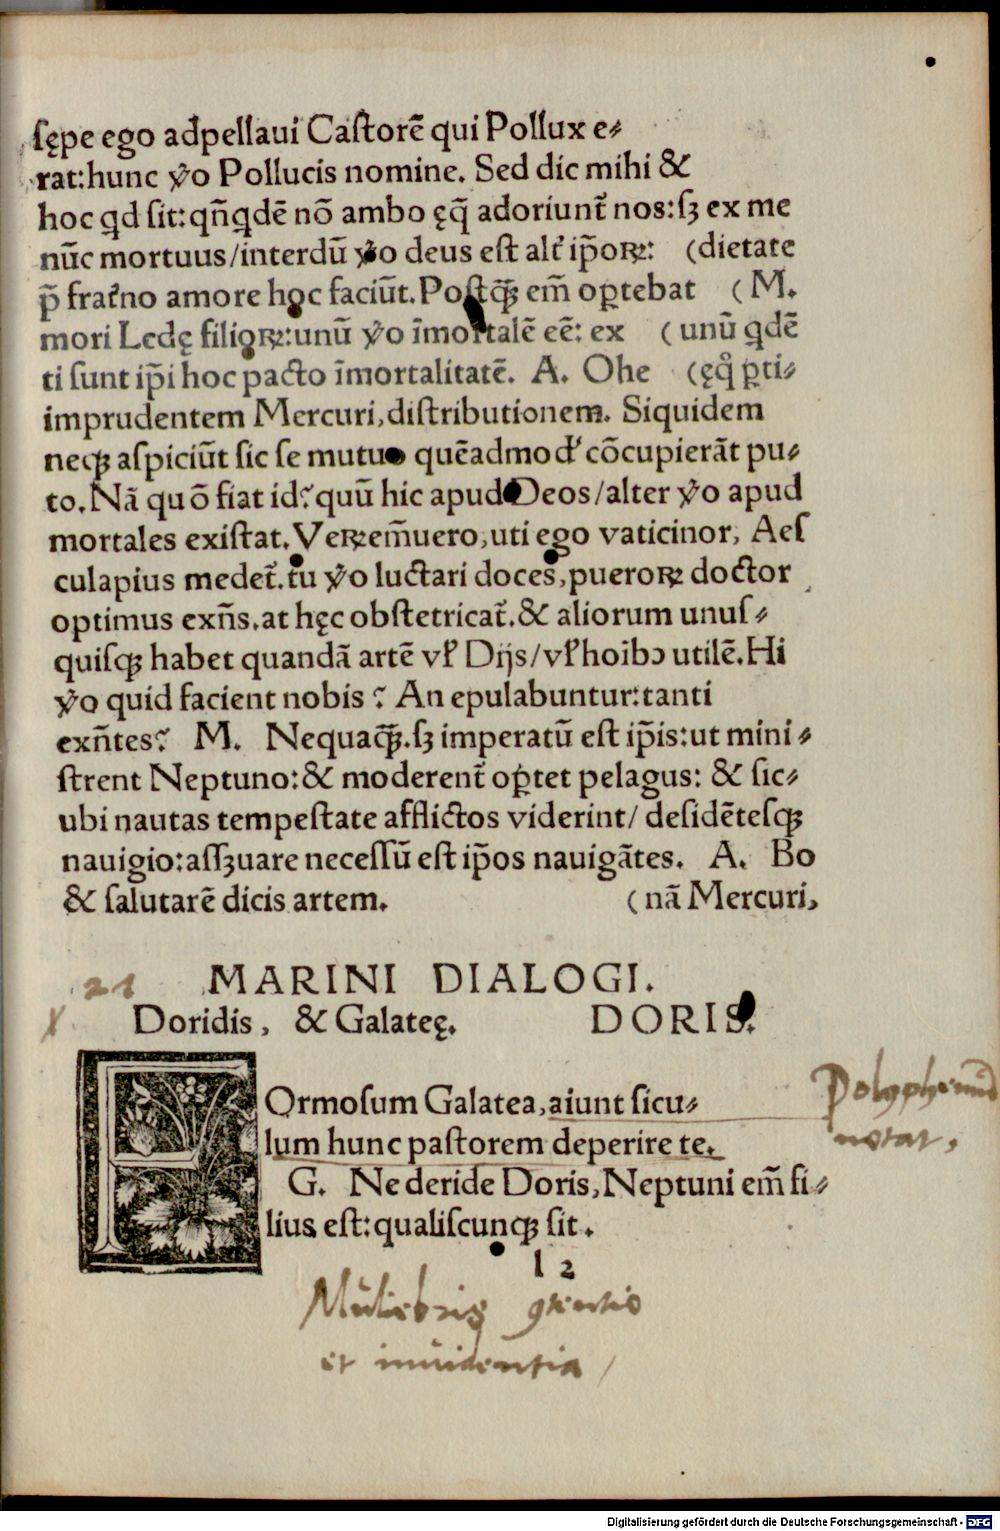 sępe ego adpellaui Castorē qui Pollux e⸗
rat:hunc ꝟo Pollucis nomine. Sed dic mihi &
hoc qd sit:qn̄qdē nō ambo ęq̄ adoriunt̄ nos:sꝫ ex me
nūc mortuus/interdū ꝟo deus est alt̓ ip̄oꝝ: (dietate
p̄ frat̓no amore hoc faciūt.Postq̄ꝫ em̄ oꝑtebat (M.
mori Ledę filioꝝ:unū ꝟo īmortalē eē: ex (unū qdē
ti sunt ip̄i hoc pacto īmortalitatē. A. Ohe (ęq̊ ꝑti⸗
imprudentem Mercuri,distributionem. Siquidem
neqꝫ aspiciūt sic se mutuo quēadmod̓ cōcupierāt pu⸗
to.Nā quō fiat id?quū hic apud Deos/alter ꝟo apud
mortales existat.Veꝝem̄uero,uti ego vaticinor, Aes
culapius medet̄.tu ꝟo luctari doces,pueroꝝ doctor
optimus exn̄s.at hęc obstetricat̄.& aliorum unus⸗
quisqꝫ habet quandā artē vl̓ Dijs/vl̓ hoībꝰ utilē.Hi
ꝟo quid facient nobis ? An epulabuntur:tanti
exn̄tes? M. Nequaq̄ꝫ.sꝫ imperatū est ip̄is:ut mini⸗
strent Neptuno:& moderent̄ oꝑtet pelagus: & sic⸗
ubi nautas tempestate afflictos viderint/ desidētesqꝫ
nauigio:assꝫuare necessū est ip̄os nauigātes. A. Bo
& salutarē dicis artem. (nā Mercuri,
21 MARINI DIALOGI.
Doridis, & Galateę. DORIS.
FOrmosum Galatea,aiunt sicu⸗
lum hunc pastorem deperire te.
G. Ne deride Doris,Neptuni em̄ fi⸗
lius est:qualiscunqꝫ sit.
Polyphemū
notat,
l 2
Muliebris ꝯtentio
et inuidentia
Digitalisierung gefördert durch die Deutsche Forschungsgemeinschaft - DFG